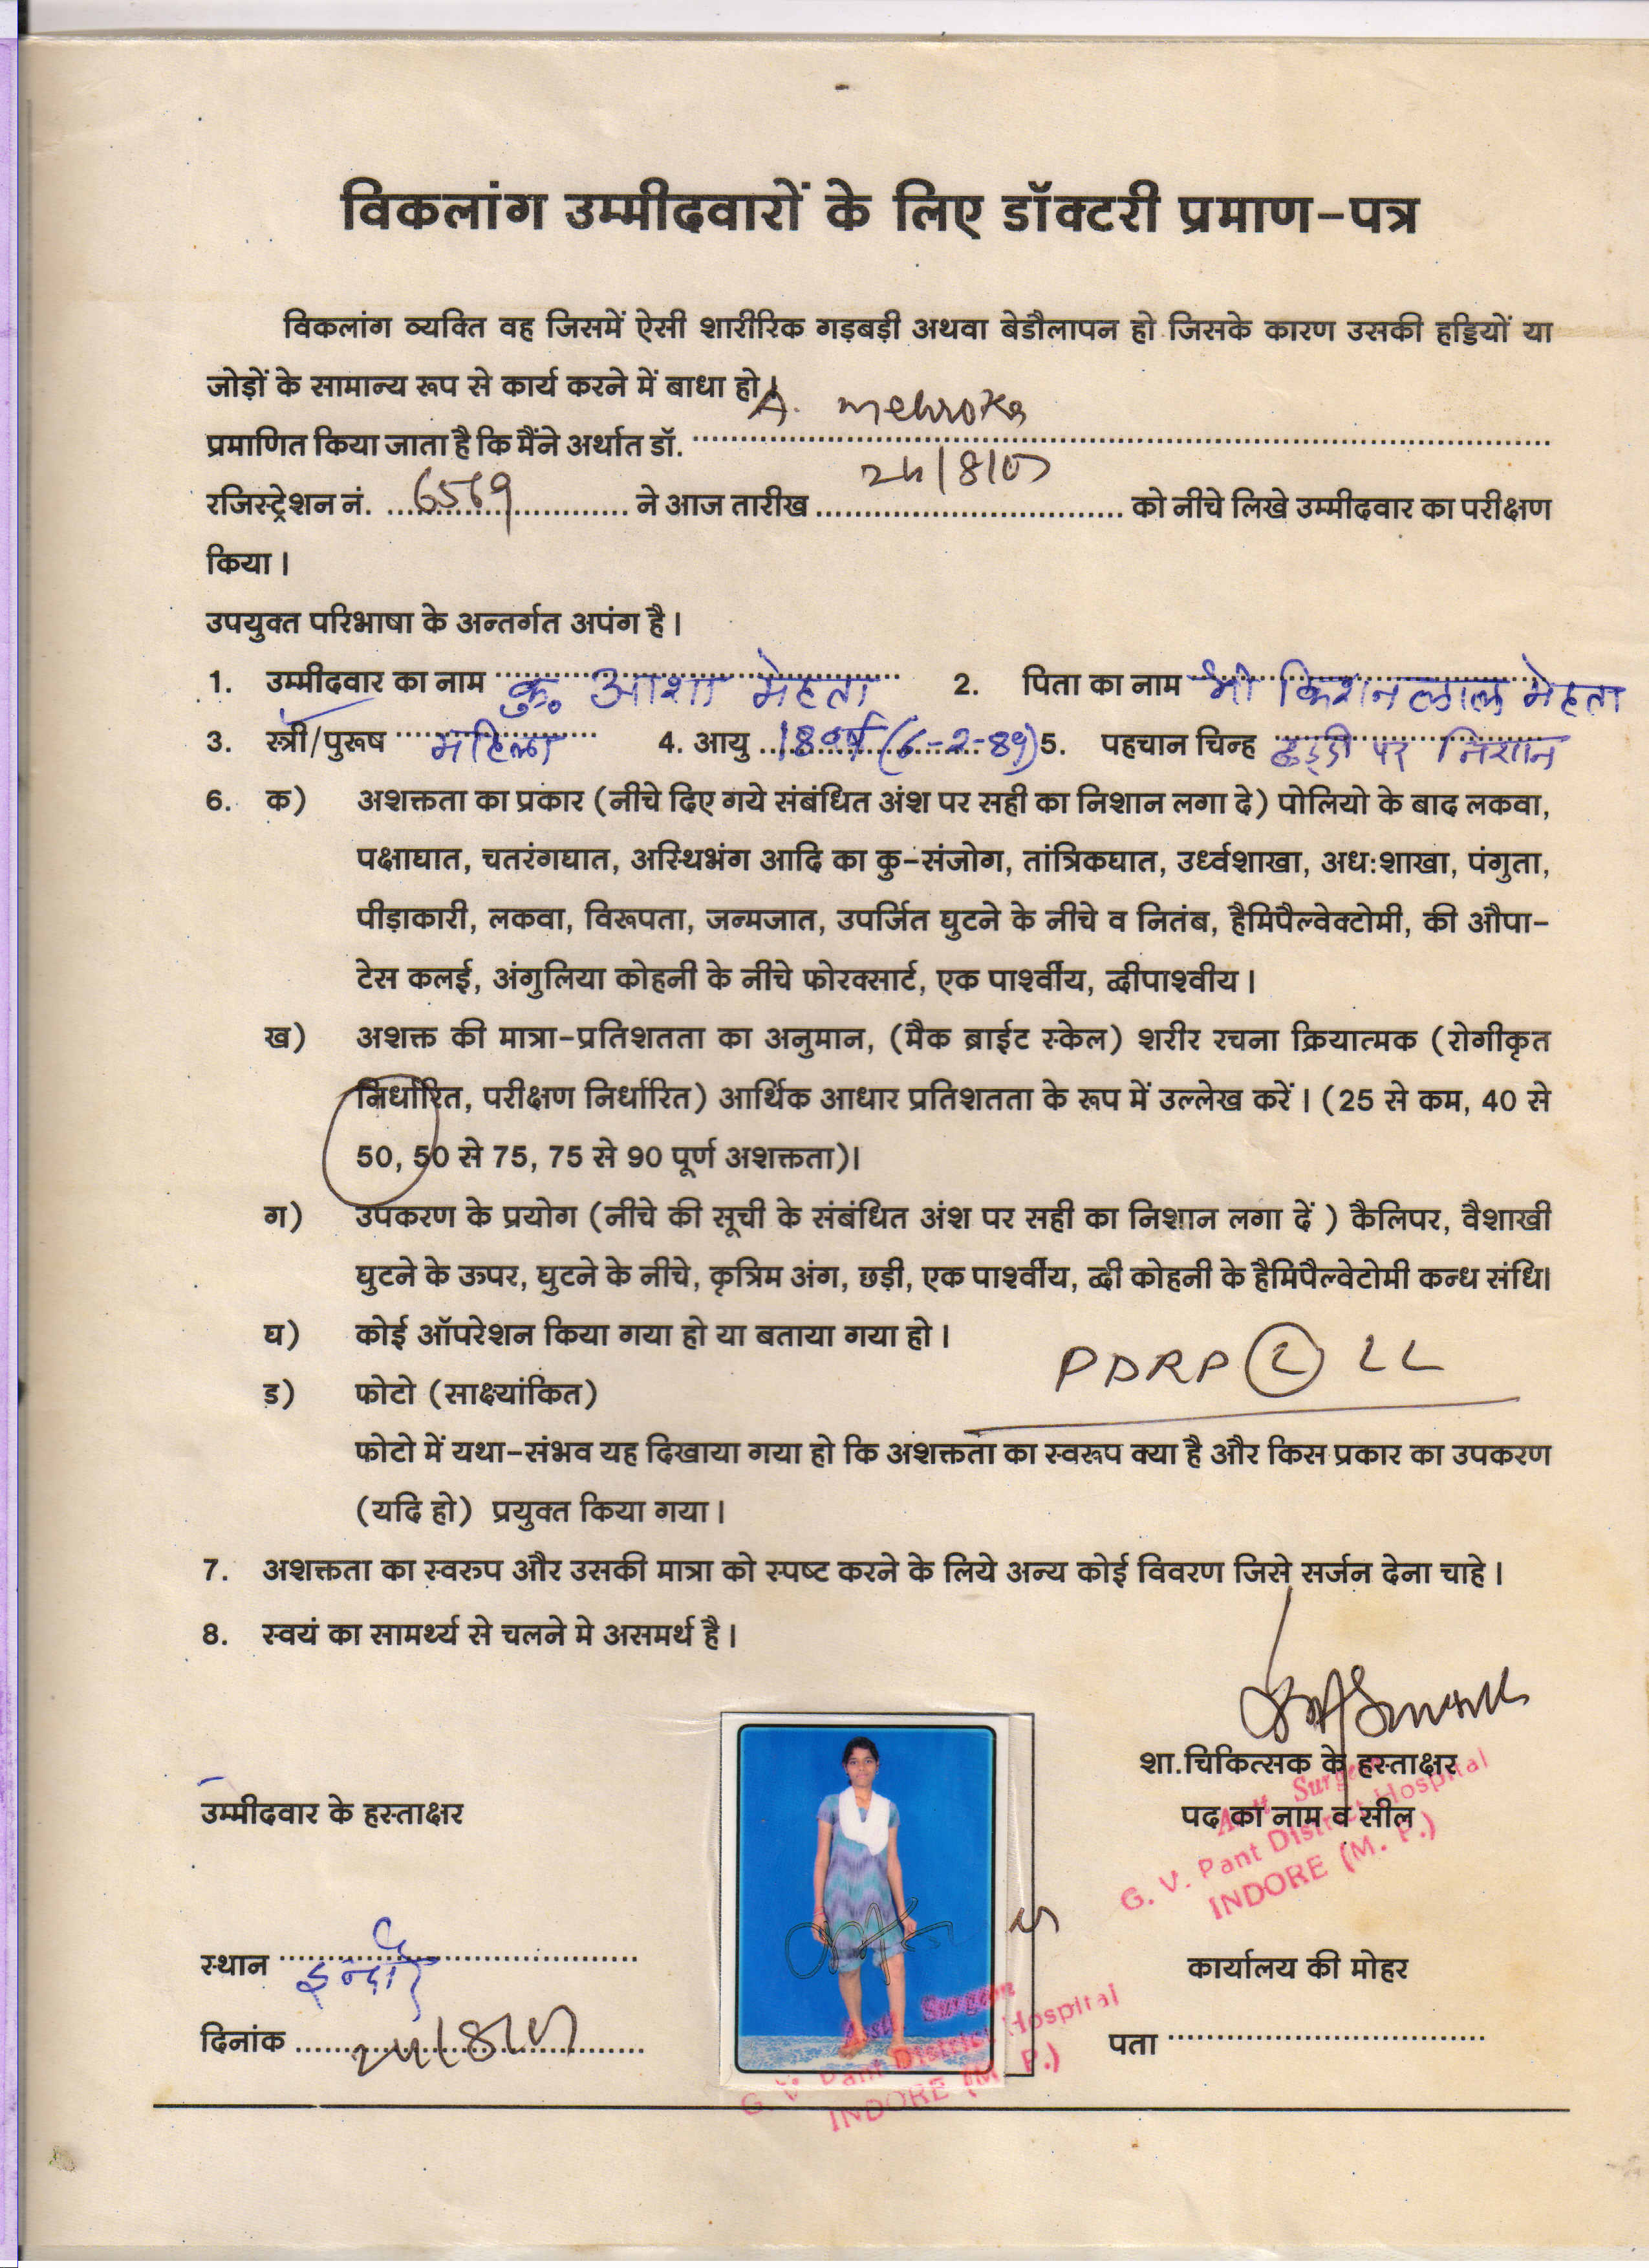 विकलांग उम्मीदवारों के लिए डॉक्टरी प्रमाण-पत्र
विकलांग व्यक्ति वह जिसमें ऐसी शारीरिक गड़बड़ी अथवा बेडौलापन हो जिसके कारण उसकी हड्डियों या
जोड़ों के सामान्य रूप से कार्य करने में बाधा हो।
प्रमाणित किया जाता है कि मैंने अर्थात डॉ. A.
रजिस्ट्रेशन नं. 6569 ने आज तारीख 24/8/07 को नीचे लिखे उम्मीदवार का परीक्षण
किया।
उपयुक्त परिभाषा के अन्तर्गत अपंग है।
1. उम्मीदवार का नाम कु. आशा मेहता 2. पिता का नाम श्री किशनलाल मेहता
3. स्त्री/पुरूष महिला 4. आयु 18 वर्ष (6-2-89) 5. पहचान चिन्ह पर निशान
6. क) अशक्तता का प्रकार (नीचे दिए गये संबंधित अंश पर सही का निशान लगा दे) पोलियो के बाद लकवा,
पक्षाघात, चतरंगघात, अस्थिभंग आदि का कु-संजोग, तांत्रिकघात, उर्ध्वशाखा, अध:शाखा, पंगुता,
पीड़ाकारी, लकवा, विरूपता, जन्मजात, उपर्जित घुटने के नीचे व नितंब, हैमिपैल्वेक्टोमी, की औपा-
टेस कलई, अंगुलिया कोहनी के नीचे फोरक्सार्ट, एक पार्श्वीय, द्वीपाश्वीय।
ख) अशक्त की मात्रा-प्रतिशतता का अनुमान, (मैक ब्राईट स्केल) शरीर रचना क्रियात्मक (रोगीकृत
निर्धारित, परीक्षण निर्धारित) आर्थिक आधार प्रतिशतता के रूप में उल्लेख करें। (25 से कम, 40 से
50, 50 से 75, 75 से 90 पूर्ण अशक्तता)।
ग) उपकरण के प्रयोग (नीचे की सूची के संबंधित अंश पर सही का निशान लगा दें ) कैलिपर, वैशाखी
घुटने के ऊपर, घुटने के नीचे, कृत्रिम अंग, छड़ी, एक पार्श्वीय, द्वी कोहनी के हैमिपैल्वेटोमी कन्ध संधि।
घ) कोई ऑपरेशन किया गया हो या बताया गया हो।
PDRP L LL
ड) फोटो (साक्ष्यांकित)
फोटो में यथा-संभव यह दिखाया गया हो कि अशक्तता का स्वरूप क्या है और किस प्रकार का उपकरण
(यदि हो) प्रयुक्त किया गया।
7. अशक्तता का स्वरुप और उसकी मात्रा को स्पष्ट करने के लिये अन्य कोई विवरण जिसे सर्जन देना चाहे।
8. स्वयं का सामर्थ्य से चलने मे असमर्थ है।
शा.चिकित्सक के हस्ताक्षर
पद का नाम व सील
Asstt Surgeon
G. V. Pant District Hospital
INDORE (M. P.)
उम्मीदवार के हस्ताक्षर
स्थान इन्दौर
कार्यालय की मोहर
दिनांक 24/8/07
पता
Asstt Surgeon
G. V. Pant District Hospital
INDORE (M. P.)